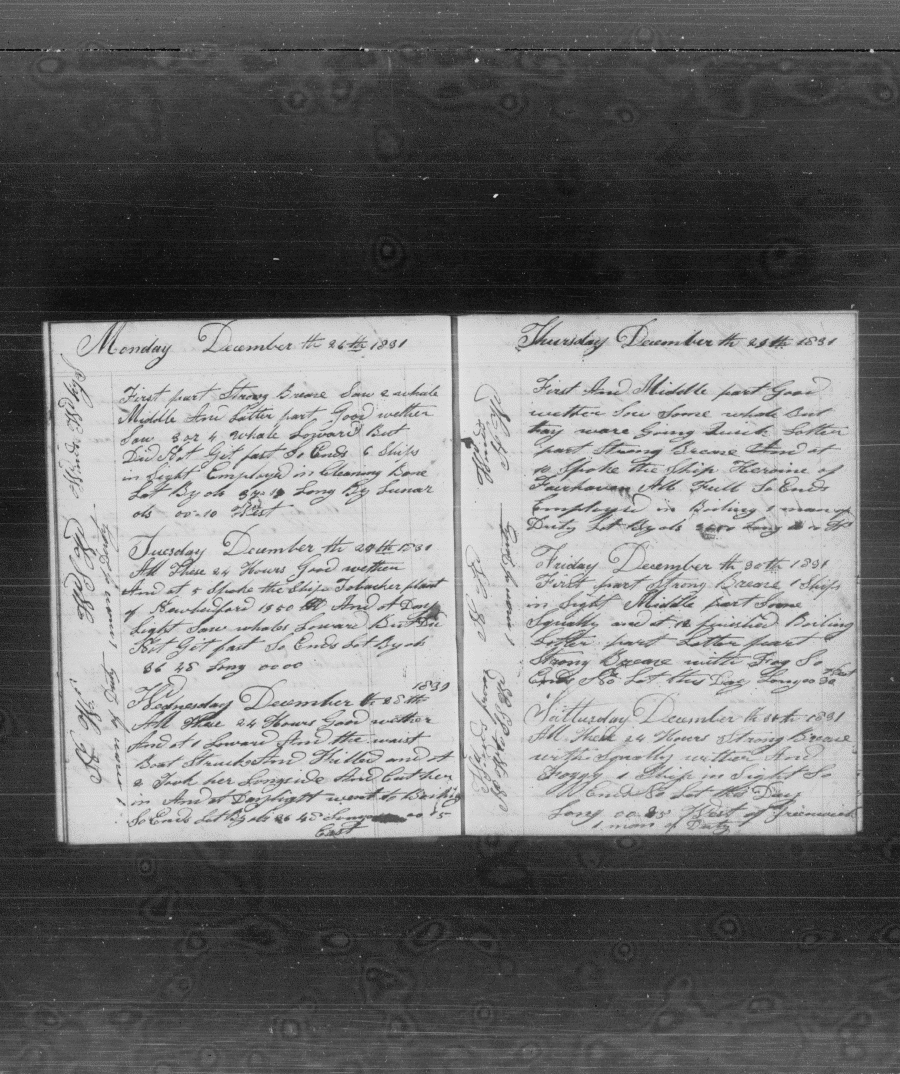 Monday December th 26th 1831
First part Strong Brease Saw 2 whale
Middle And Latter part Good wether
Saw 3 or 4 whale Loward But
Did Not Get fast So Ends 6 Ships
in Sight Employed in Cleaning Bone
Lat By ob 37-19 Long By Lunar
obs 00-10 West
Tuesday December th 27th 1831
All These 24 Hours Good wether
And at 5 Spoke the Ship Tobacker plant
of Newbedford 1950 And at Day
Light Saw whales Loward But Did
Not Get fast So Ends Lat By ob
36 45 Long 00 00
1831
Wednesday December th 28th
All These 24 Hours Good wether
And at 1 Loward And the waist
Boat Struck And Killed and at
2 Took her Longside And Cut her
in And at Daylight went to Boiling
So Ends Lat By ob 36 45 Long 00 15
East
1 man of Duty
1 man of Duty
Thursday December th 29th 1831
First And Middle part Good
wether Saw Some whale But
thay ware Going Quick Latter
part Strong Brease And at
10 Spoke the Ship Heroine of
Fairhaven All Full So Ends
Employed in Boiling 1 man of
Duty Lat By ob Long
Friday December th 30th 1831
First part Strong Brease 1 Ship
in Sight Middle part Some
Squally and at 12 finished Boiling
Latter part Latter part
Strong Brease with Fog So
Ends No Lat this Day Long 00 30
West
Satturday December th 31th 1831
All These 24 Hours Strong Brease
with Squally wether And
Foggy 1 Ship in Sight So
Ends No Lat this Day
Long 00 35 West of Greenwich
1 man of Duty
1 man of Duty